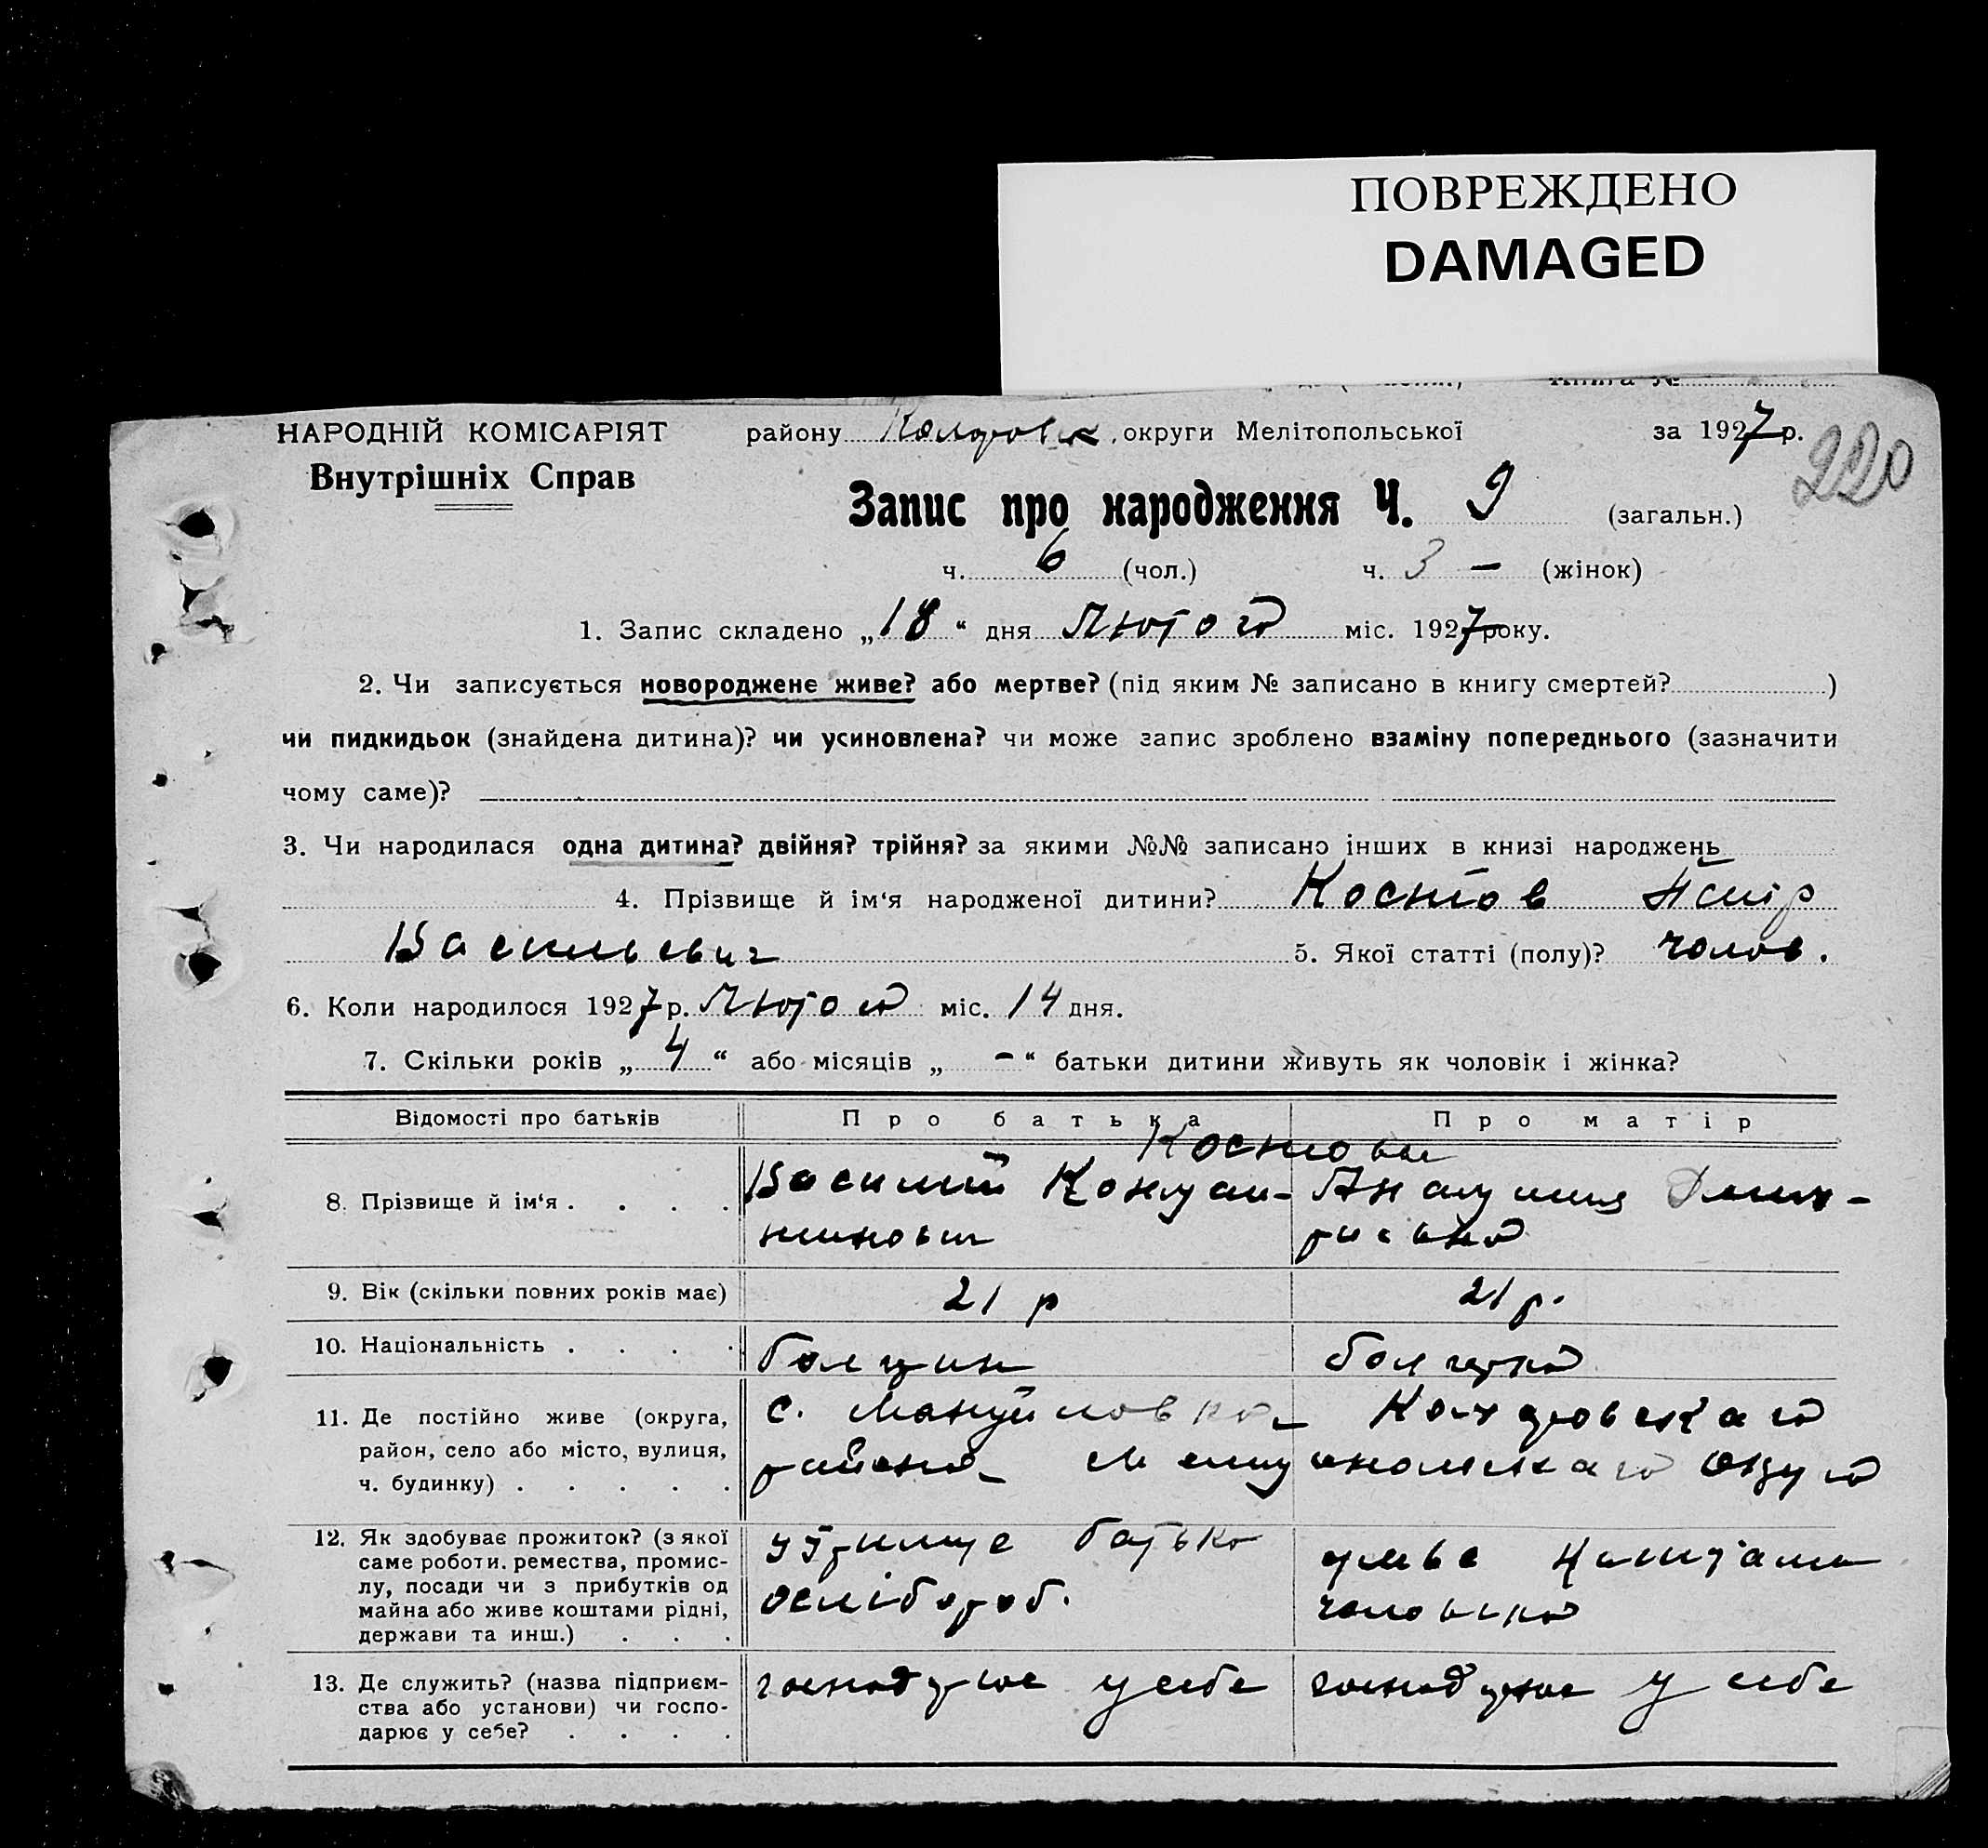 ПОВРЕЖДЕНО
DAMAGED
Книга №
НАРОДНІЙ КОМІСАРІЯТ району округи Мелітопольської за 1927 р.
220
Внутрішніх Справ
Запис про народження Ч. 9 (загальн.)
ч. 6 (чол.) ч. 3 — (жінок)
1. Запис складено „18“ дня Лютого міс. 1927 року.
2. Чи записується новороджене живе? або мертве? (під яким № записано в книгу смертей? )
чи пидкидьок (знайдена дитина)? чи усиновлена? чи може запис зроблено взаміну попереднього (зазначити
чому саме)?
3. Чи народилася одна дитина? двійня? трійня? за якими №№ записано інших в книзі народжень
4. Прізвище й ім‘я народженої дитини? Костов
Васильевич 5. Якої статті (полу)? чолов.
6. Коли народилося 1927 р. Лютого міс. 14 дня.
7. Скільки років „4“ або місяців „—“ батьки дитини живуть як чоловік і жінка?
Відомості про батьків Про батька Про матір
Костовы
8. Прізвище й ім‘я . . . . Василий Констан-
тинович
9. Вік (скільки повних років має) 21 р 21 р.
10. Національність . . . . болгарин болгарка
11. Де постійно живе (округа, с. Мануйловка
район, село або місто, вулиця, района
ч. будинку) . . . . .
12. Як здобуває прожиток? (з якої батько
саме роботи, ремества, промис-
лу, посади чи з прибутків од
майна або живе коштами рідні,
держави та инш.) . . .
13. Де служить? (назва підприєм- господарює у себе господарює у себе
ства або установи) чи госпо-
дарює у себе? . . . .